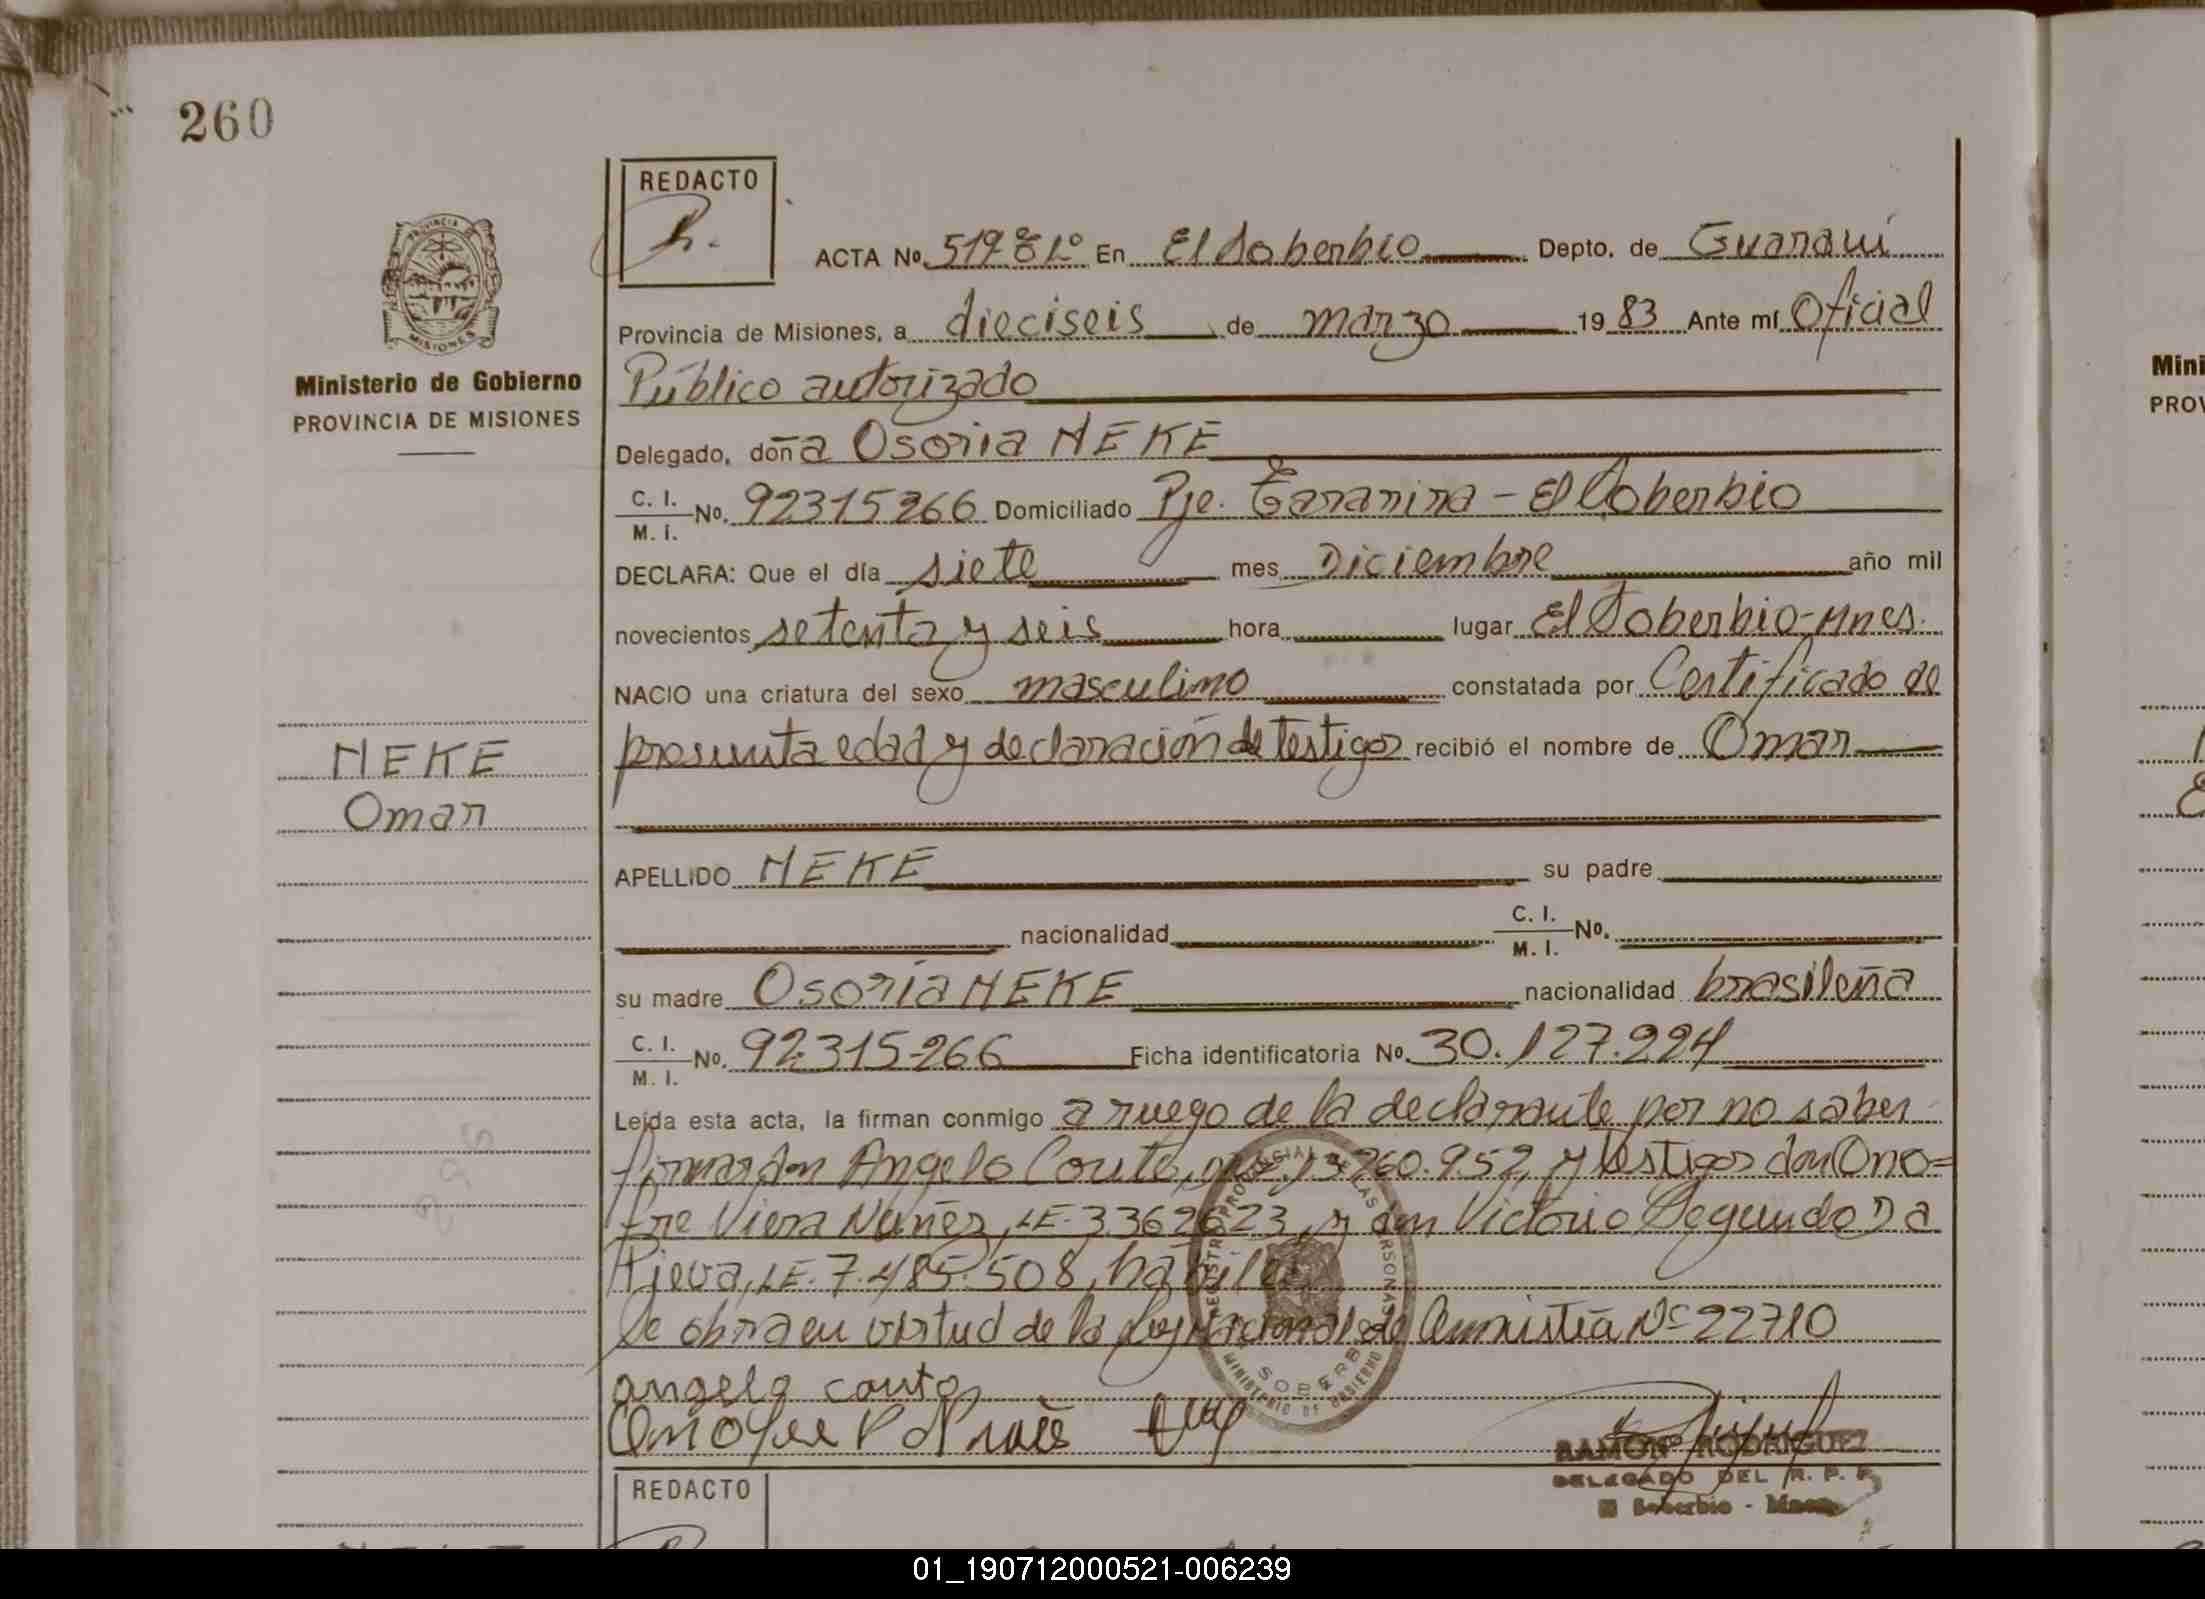 260
REDACTO
PROVINCIA DE
MISIONES
ACTA Nº 519 En El Soberbio Depto. de Guaraní
Provincia de Misiones, a dieciseis de marzo 1983 Ante mí Oficial
Ministerio de Gobierno
PROVINCIA DE MISIONES
Público autorizado
Delegado, doña Osoria NEKE
C. I.
M. I.
No. 92315266 Domiciliado Pje. - El Soberbio
DECLARA: Que el día siete mes Diciembre año mil
novecientos setenta y seis hora lugar El Soberbio-Mnes.
NACIO una criatura del sexo masculino constatada por Certificado de
presunta edad y declaración de testigos recibió el nombre de Omar
NEKE
Omar
APELLIDO NEKE su padre
nacionalidad C. I.
M. I. No.
su madre Osoria NEKE nacionalidad brasileña
C. I.
M. I.
No. 92.315.266 Ficha identificatoria No. 30.127.224
Leída esta acta, la firman conmigo a ruego de la declarante por no saber
firmar don Angelo Couto, 13260.952, y testigos don Ono=
fre Viera Nuñez, LE. 3362623, y don Victorio Segundo Da
LE. 7.485.508, hábiles
Se obra en virtud de la Ley Nacional de Amnistía Nº 22710
angelo couto
RAMON RODRIGUEZ
DELEGADO DEL R. P. P.
El Soberbio - Mnes
REDACTO
Mini
PROV
01_190712000521-006239